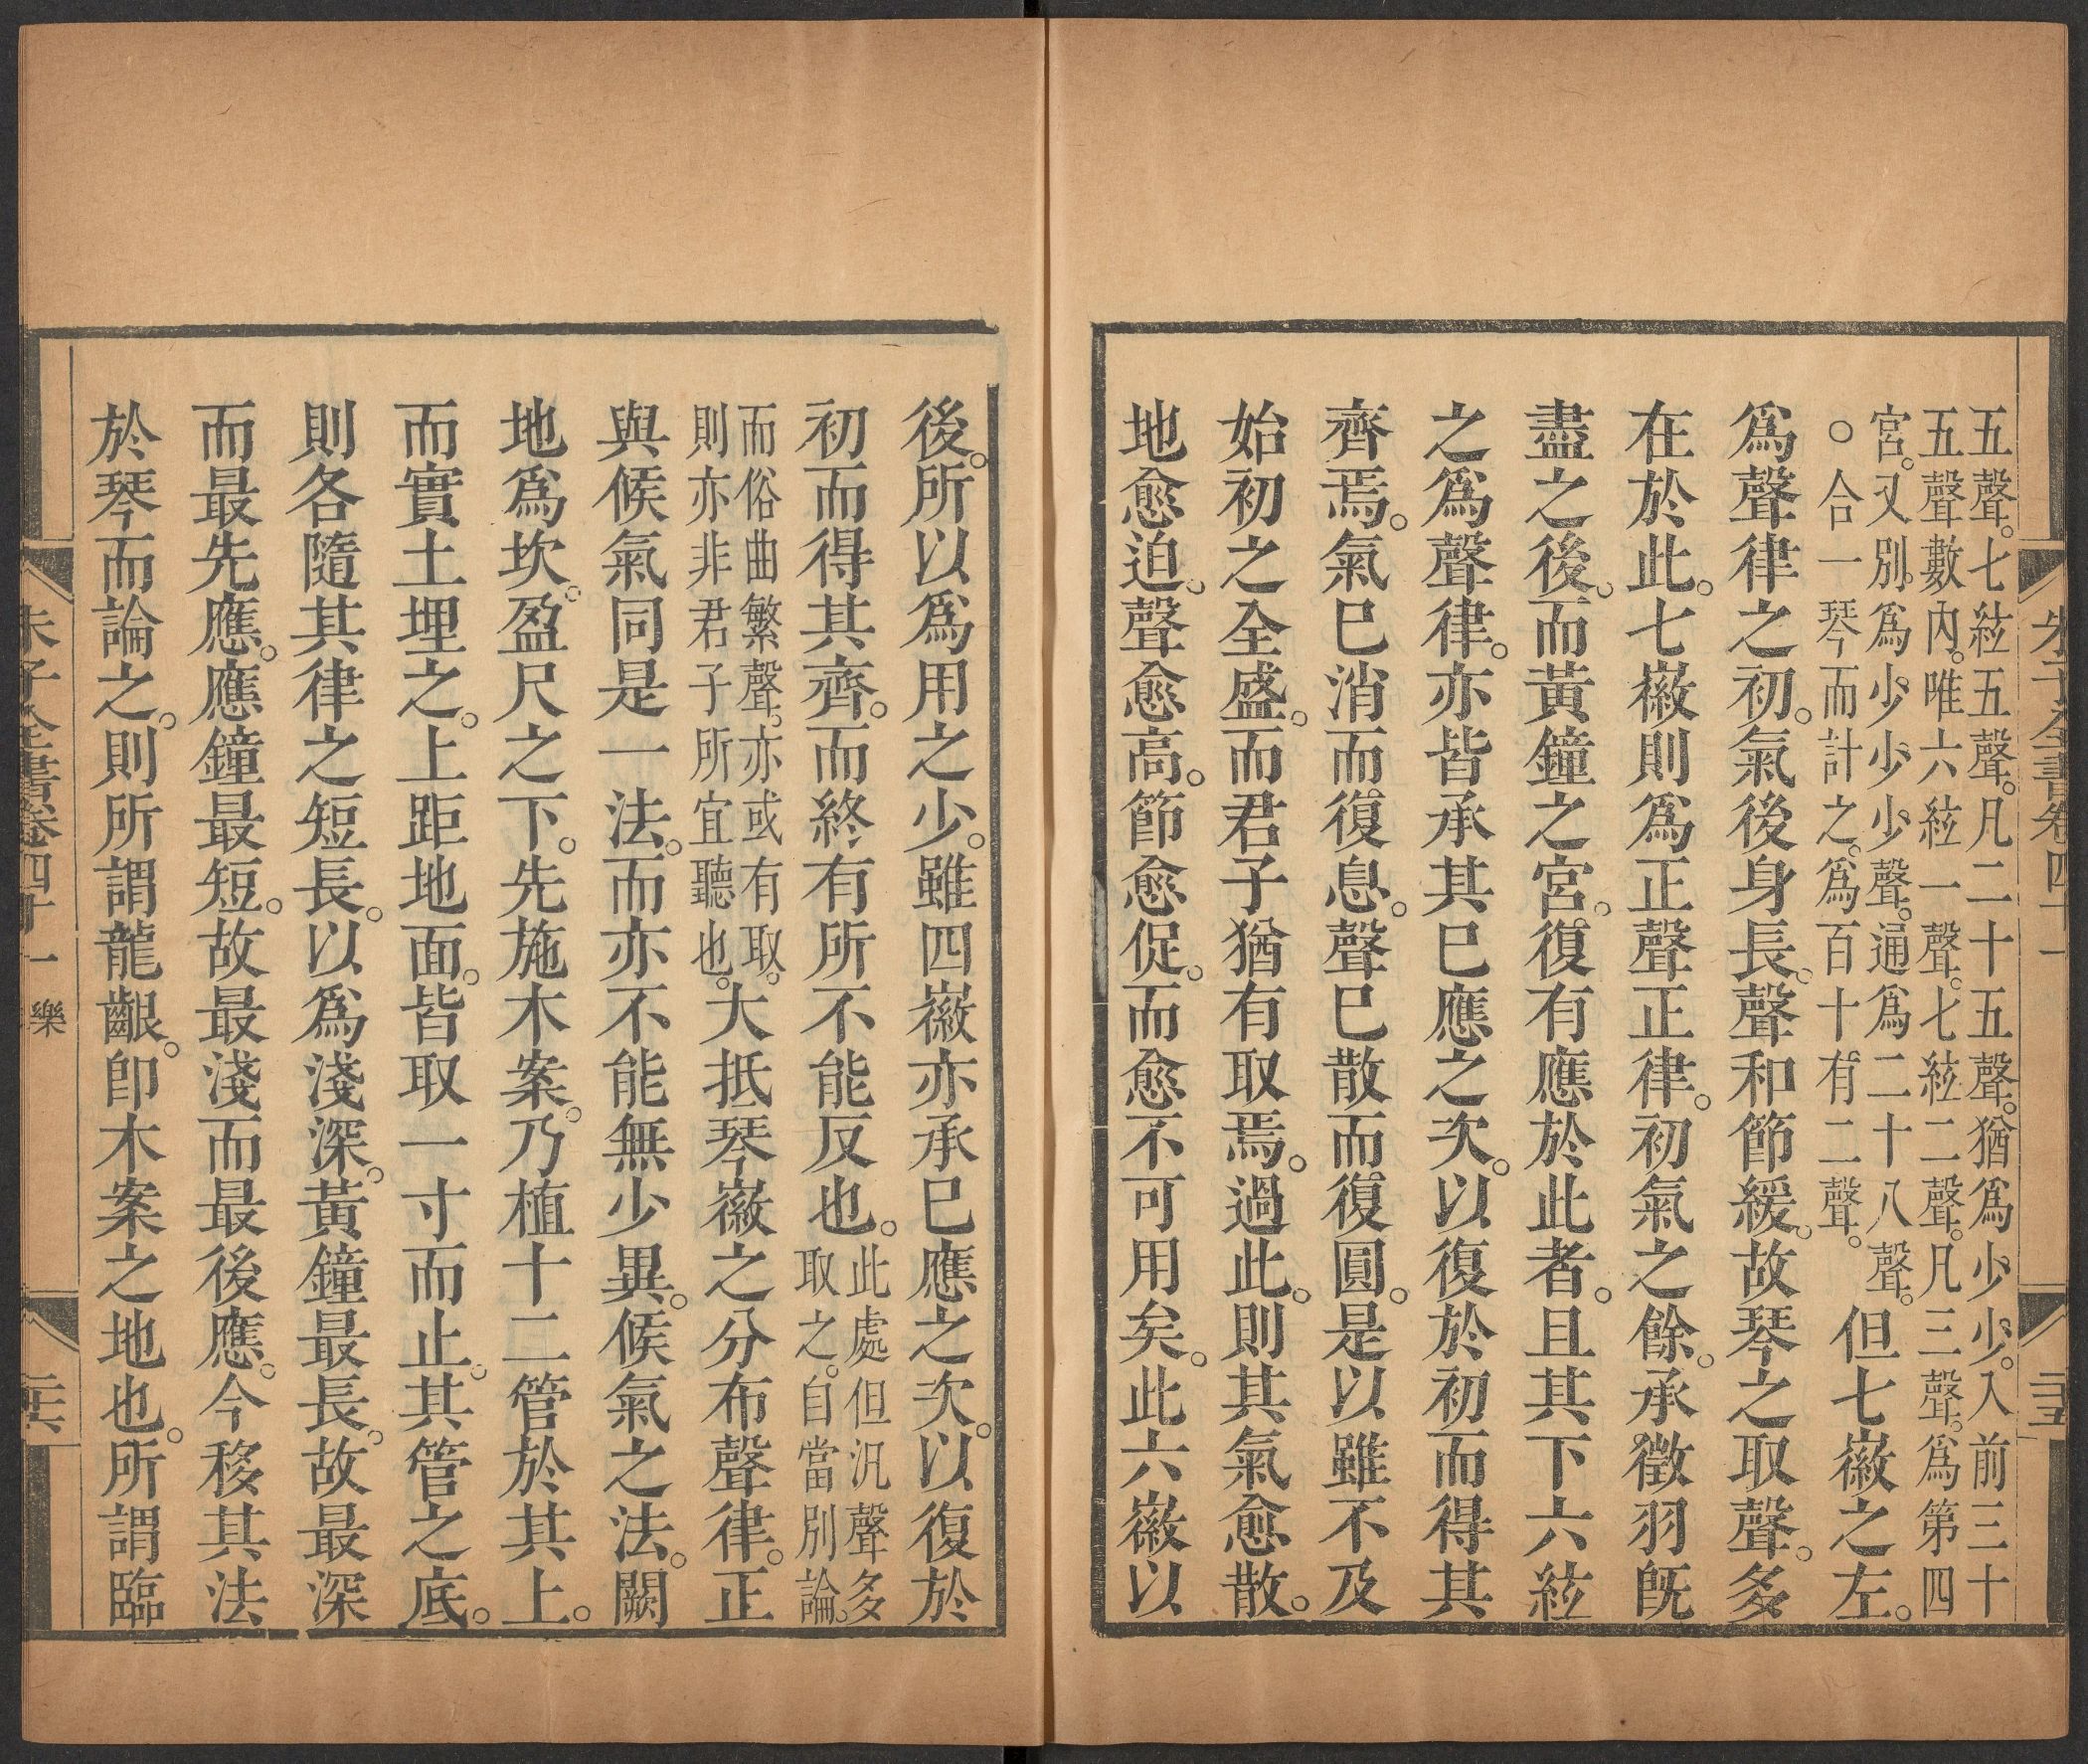 五聲。七絃五聲。凡二十五聲。猶爲少少。入前三十
五聲數內。唯六絃一聲。七絃二聲。凡三聲。爲第四
宮。又別爲少少少聲。通爲二十八聲。
○合一琴而計之。爲百十有二聲。
但七徽之左。
爲聲律之初。氣後身長。聲和節緩。故琴之取聲。多
在於此。七徽則爲正聲正律。初氣之餘。承徵羽既
盡之後。而黃鐘之宮。復有應於此者。且其下六絃
之爲聲律。亦皆承其已應之次。以復於初而得其
齊焉。氣已消而復息。聲已散而復圓。是以雖不及
始初之全盛。而君子猶有取焉。過此。則其氣愈散。
地愈迫。聲愈高。節愈促。而愈不可用矣。此六徽以
朱子全書卷四十一
二十五
後。所以爲用之少。雖四徽亦承已應之次。以復於
初而得其齊。而終有所不能反也。
此處但汎聲多
取之。自當別論。
而俗曲繁聲。亦或有取。
則亦非君子所宜聽也。
大抵琴徽之分布聲律。正
與候氣同是一法。而亦不能無少異。候氣之法。闕
地爲坎。盈尺之下。先施木案。乃植十二管於其上。
而實土埋之。上距地面。皆取一寸而止。其管之底。
則各隨其律之短長。以爲淺深。黃鐘最長。故最深
而最先應。應鐘最短。故最淺而最後應。今移其法
於琴而論之。則所謂龍齦。卽木案之地也。所謂臨
朱子全書卷四十一
樂
二十六